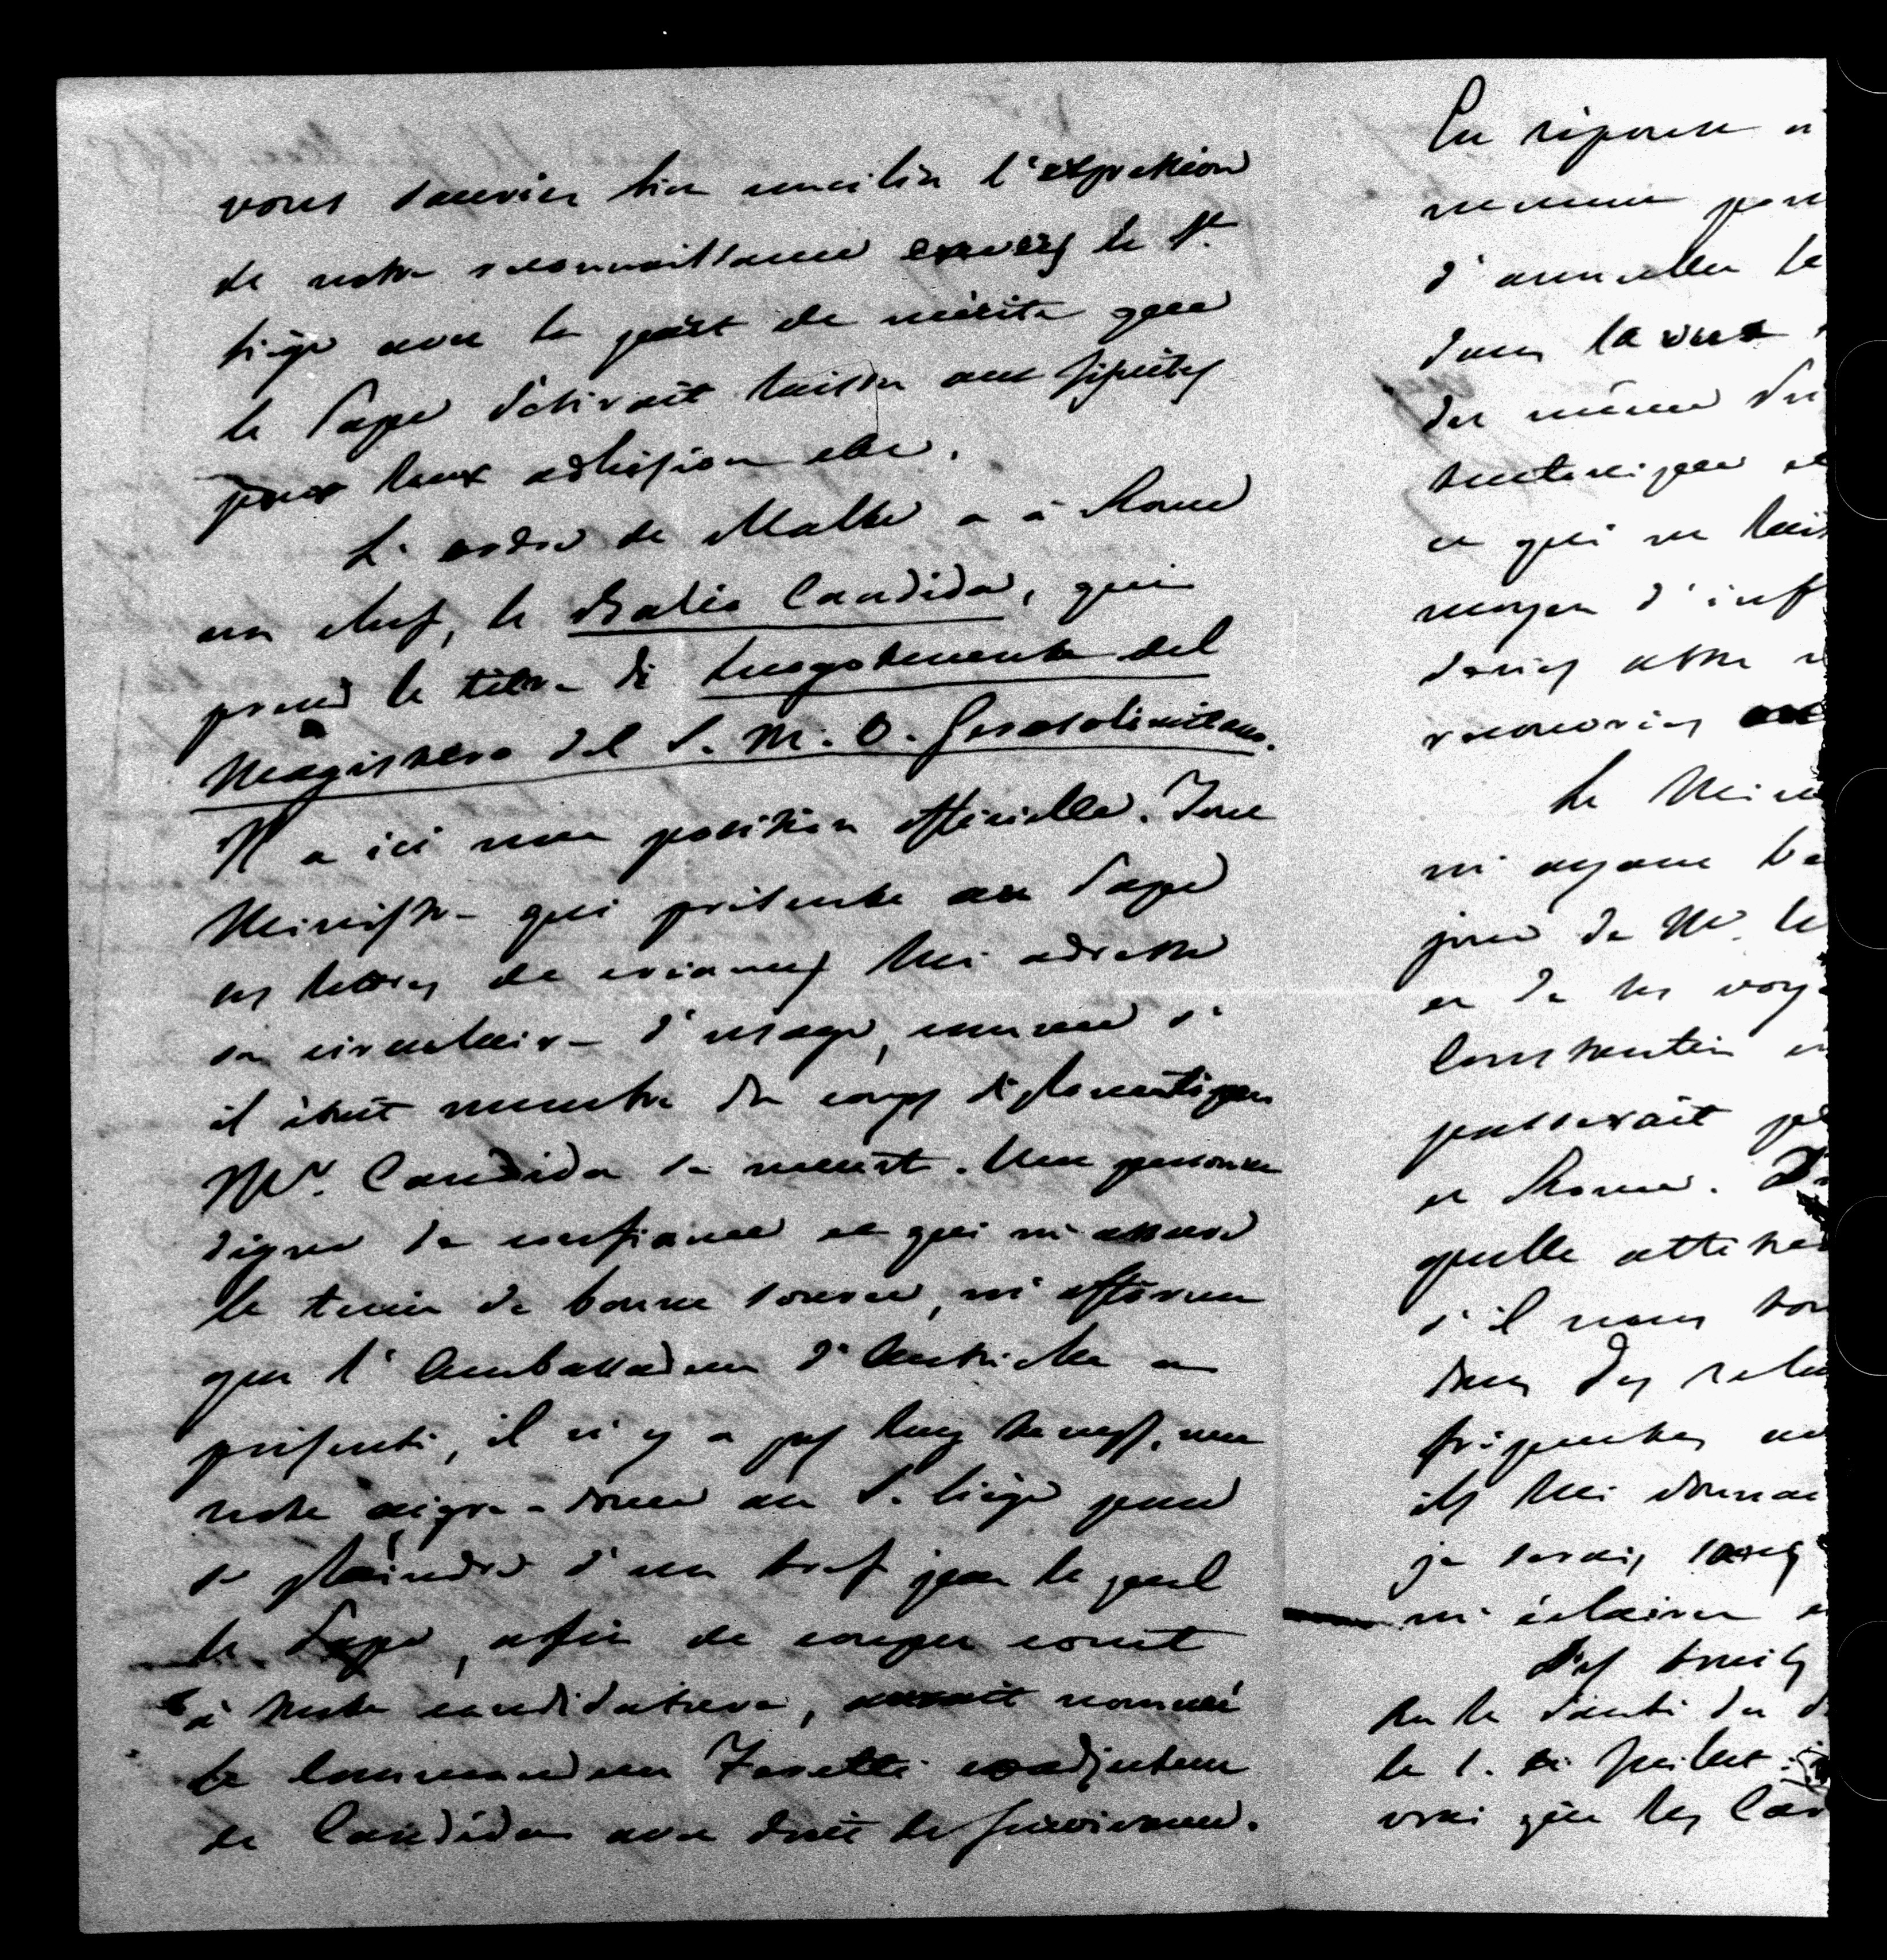 vous sauriez bien concilier l'expression
de notre reconnaissance envers le St.
Siège avec la part de mérite que
le Pape désirait laisser aux jésuites
pour leur adhésion etc.
L'ordre de Malte a à Rome
un chef, le Balio Candida, qui
prend le titre di Luogotenente del
Magistero del S. M. O. Gerosolimitano.
Il a ici une position officielle. Tout
Ministre qui présente au Pape
ses lettres de créances lui adresse
sa circulaire d'usage, comme s'
il était membre du corps diplomatique
Mr. Candida se meurt. Une personne
digne de confiance et qui m'assure
le tenir de bonne source, m'affirme
que l'Ambassadeur d'Autriche a
présenté, il n'y a pas long temps, une
note aigre-douce au S. Siège pour
se plaindre d'un bref par le quel
le Pape, afin de couper court
à toute candidature, aurait nommé
le Commandeur coadjuteur
de Candida avec droit de survivance.
En réponse
d'annuler le
dans la
du même
et qui ne
moyen d'inf
Le Mini
m'ayant
jour de Mr. le
et de ses voy
Constantin
passerait
et Rome.
quelle
s'il nous
dans des rela
fréquentes
ils lui
je serais
m'éclairer
Des bruits
sur la santé du
le 1. di Juillet.
vrai que les Car